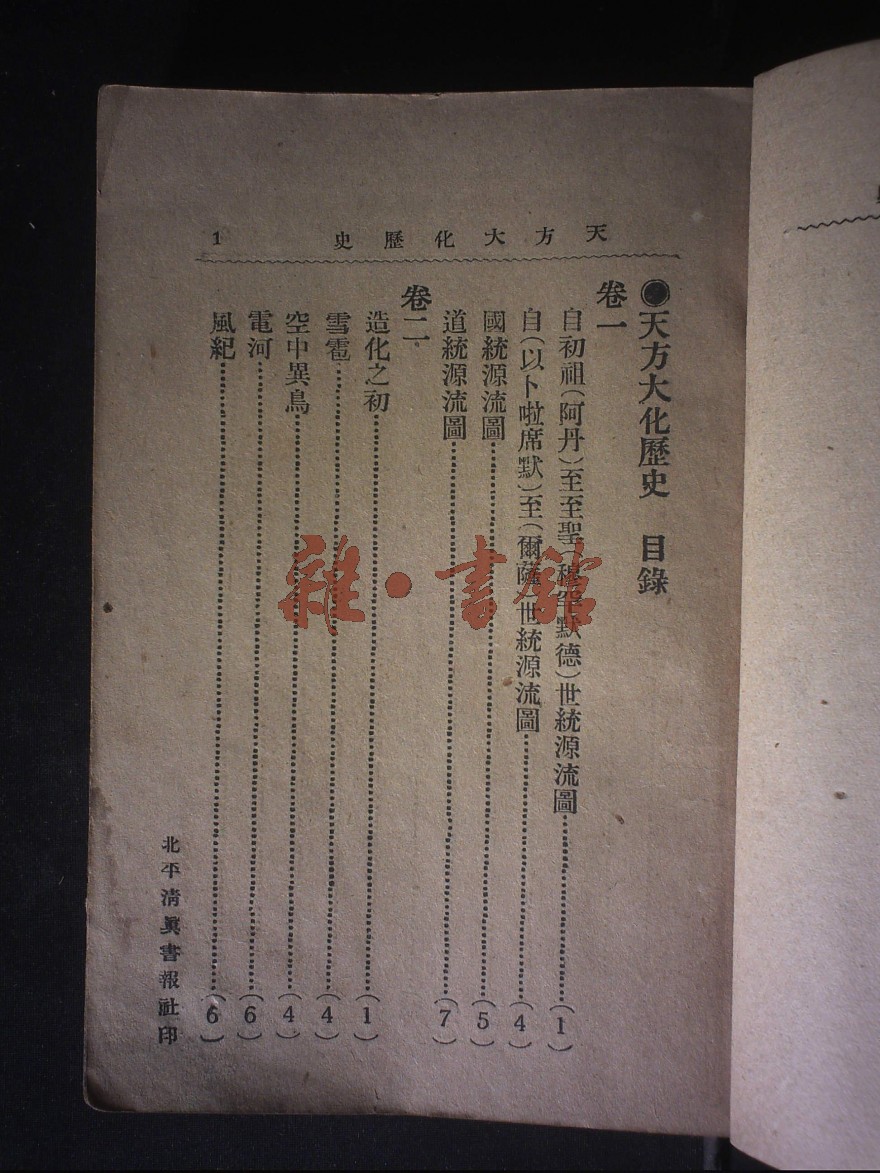 天方大化歷史 1
●天方大化歷史 目錄
卷一
自初祖(阿丹)至至聖(穆罕默德)世統源流圖(1)
自(以卜啦席默)至(爾薩)世統源流圖(4)
國統源流圖(5)
道統源流圖(7)
卷二
造化之初(1)
雪雹(4)
空中異鳥(4)
電河(6)
風紀(6)
北平清眞書報社印
雜·書館